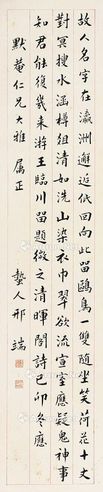 故人名字在瀛洲邂逅低回向此留鷗鳥一雙隨坐笑荷花十丈
對冥搜水涵樽俎清如洗山染衣巾翠欲流宣室應疑鬼神事
知君能復幾來游王臨川留題微之清暉閣詩己卯冬應
默庵仁兄大雅屬正
蟄人邢端